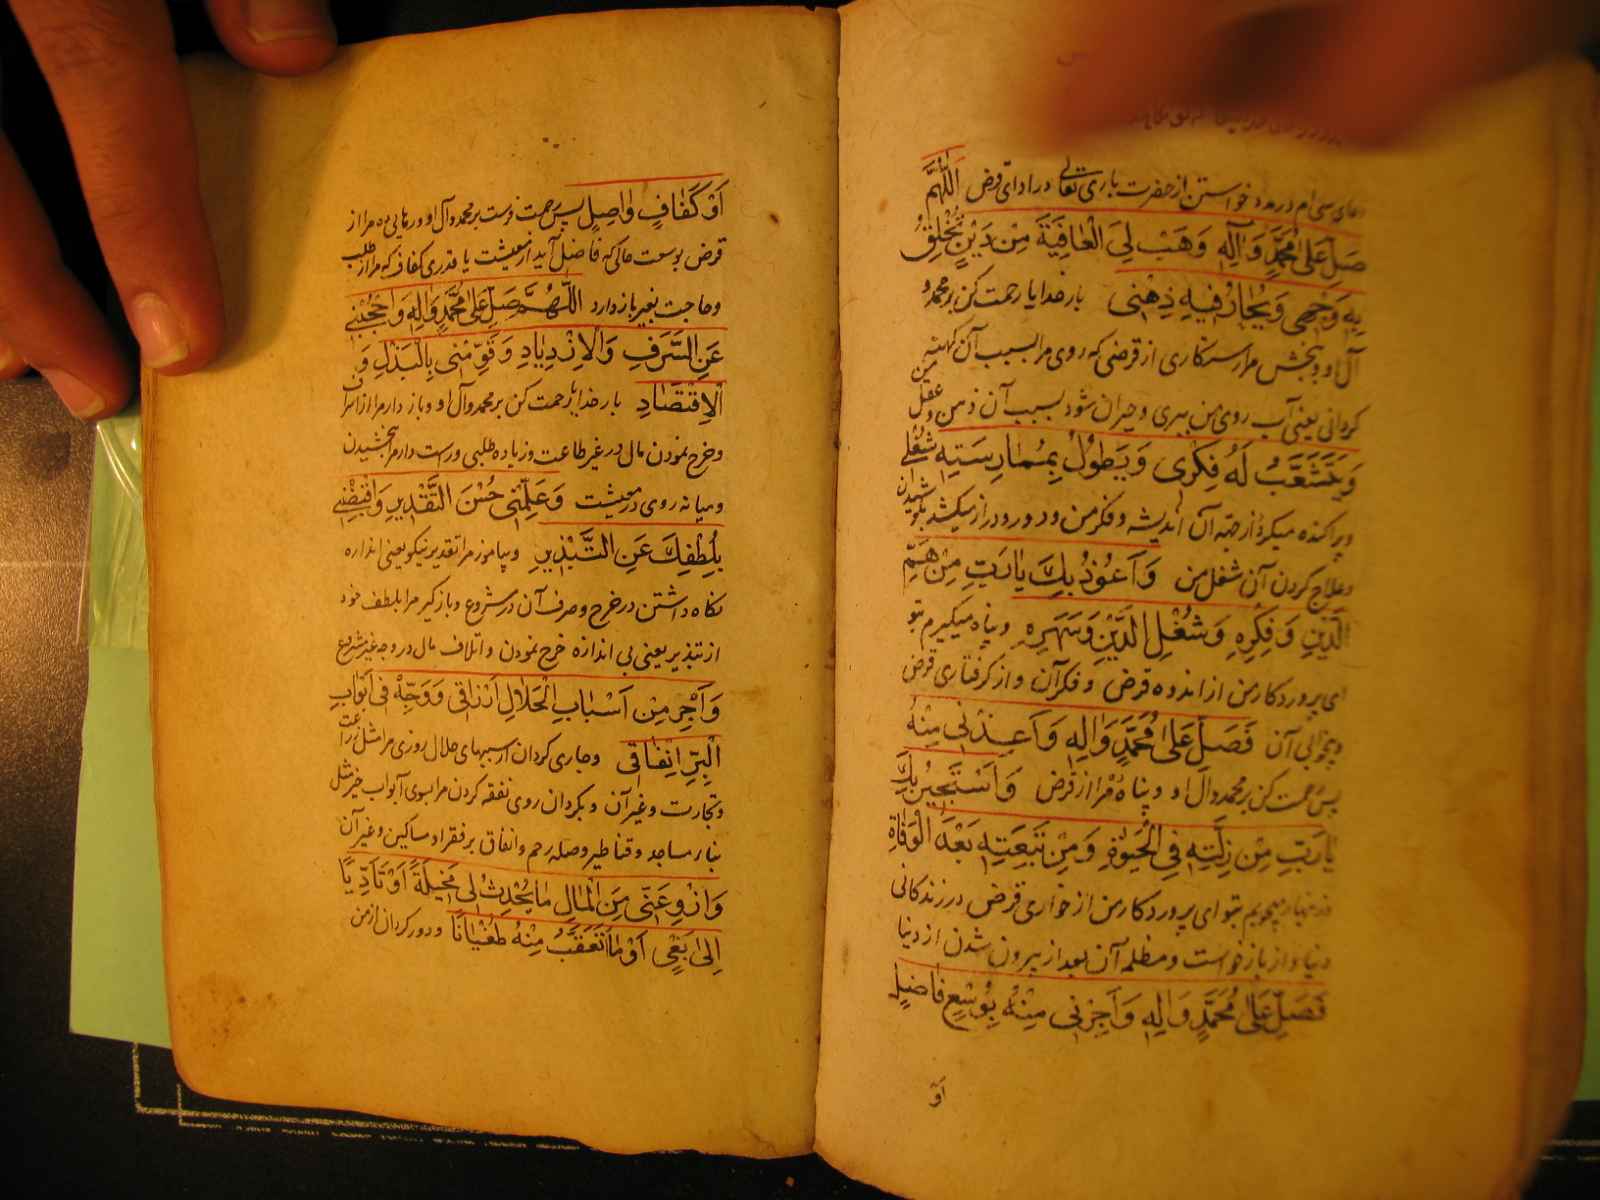 دعای سی ام در مدد خواستن از حضرت باری تعالی در ادای قرض اَللّٰهُمَّ
صَلِّ عَلٰی مُحَمَّدٍ وَاٰلِهِ وَهَبْ لِیَ الْعٰافِیَةَ مِنْ دَیْنٍ تُخْلِقُ
بِهِ وَجْهی وَیَحٰارُ فیهِ ذِهْنی بار خدایا رحمت کن بر محمد و
آل او و ببخش مرا رستکاری از قرضی که روی مرا بسبب آن کهنه
کردانی یعنی آب روی من ببری و حیران شود بسبب آن ذهن من و عقل من
وَیَتَشَعَّبُ لَهُ فِکْری وَیَطُولُ بِمُمٰارَسَتِهِ شُغْلی
و پراکنده میکردد از جهة آن اندیشه و فکر من و دور و دراز میکشد بکوشیدن
و علاج کردن آن شغل من وَاَعُوذُ بِكَ یٰا رَبِّ مِنْ هَمِّ
الدَّیْنِ وَفِکْرِهِ وَشُغْلِ الدَّیْنِ وَسَهَرِهِ و پناه میکیرم بتو
ای پروردکار من از اندوه قرض و فکر آن و از کرفتاری قرض
و بیخوابی آن فَصَلِّ عَلٰی مُحَمَّدٍ وَاٰلِهِ وَاَعِذْنی مِنْهُ
پس رحمت کن بر محمد و آل او و پناه ده مرا از قرض وَاَسْتَجیرُ بِكَ
یٰا رَبِّ مِنْ ذِلَّتِهِ فِی الْحَیٰوةِ وَمِنْ تَبِعَتِهِ بَعْدَ الْوَفٰاةِ
و زنهار میجویم بتو ای پروردکار من از خواری قرض در زندکانی
دنیا و از بازخواست و مظلمه آن بعد از بیرون شدن از دنیا
فَصَلِّ عَلٰی مُحَمَّدٍ وَاٰلِهِ وَاَجِرْنی مِنْهُ بِوُسْعٍ فٰاضِلٍ
اَوْ
اَوْ کَفٰافٍ وٰاصِلٍ پس رحمت فرست بر محمد و آل او و رهایی ده مرا از
قرض بوسعت حالی که فاضل آید از معیشت یا قدری کفاف که مرا از طلب
و حاجت بغیر باز دارد اَللّٰهُمَّ صَلِّ عَلٰی مُحَمَّدٍ وَاٰلِهِ وَاحْجُبْنی
عَنِ السَّرَفِ وَالْاِزْدِیٰادِ وَقَوِّمْنی بِالْبَذْلِ وَ
الْاِقْتِصٰادِ بار خدایا رحمت کن بر محمد و آل او و باز دار مرا از اسراف
و خرج نمودن مال در غیر طاعت و زیاده طلبی و راست دار مرا ببخشیدن
و میانه روی در معیشت وَعَلِّمْنی حُسْنَ التَّقْدیرِ وَاقْبِضْنی
بِلُطْفِكَ عَنِ التَّبْذیرِ و بیاموز مرا تقدیر نیکو یعنی اندازه
نکاه داشتن در خرج و صرف آن در مشروع و باز کیر مرا بلطف خود
از تبذیر یعنی بی اندازه خرج نمودن و اتلاف مال در وجه غیر مشروع
وَاَجْرِ مِنْ اَسْبٰابِ الْحَلٰالِ اَرْزٰاقی وَوَجِّهْ فی اَبْوٰابِ
الْبِرِّ اِنْفٰاقی و جاری کردان از سببهای حلال روزی مرا مثل زراعت
و تجارت و غیر آن و بکردان روی نفقه کردن مرا بسوی آبواب خیر مثل
بناء مساجد و قناطیر و صله رحم و انفاق بر فقرا و مساکین و غیر آن
وَازْوِ عَنّی مِنَ الْمٰالِ مٰا یُحْدِثُ لی مَخیلَةً اَوْ تَأَدِّیًا
اِلٰی بَغْیٍ اَوْ مٰا اَتَعَقَّبُ مِنْهُ طُغْیٰانًا و دور کردان از من